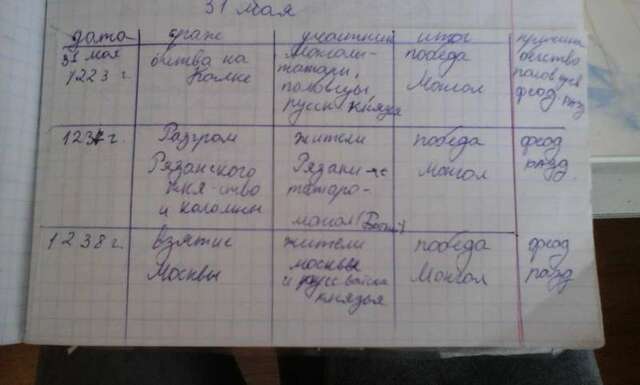 31 мая
дата сраж участники итог причина
31 мая 1223 г. битва на Калке Монголо-татары, половцы, русск. князья победа Монгол бегство половцев феод. разд
1237 г. Разгром Рязанского кня-ство и коломны жители Рязани татаро-монгол (Батый) победа Монгол феод разд.
1238 г. Взятие Москвы жители москвы и русс войска князья победа Монгол феод разд